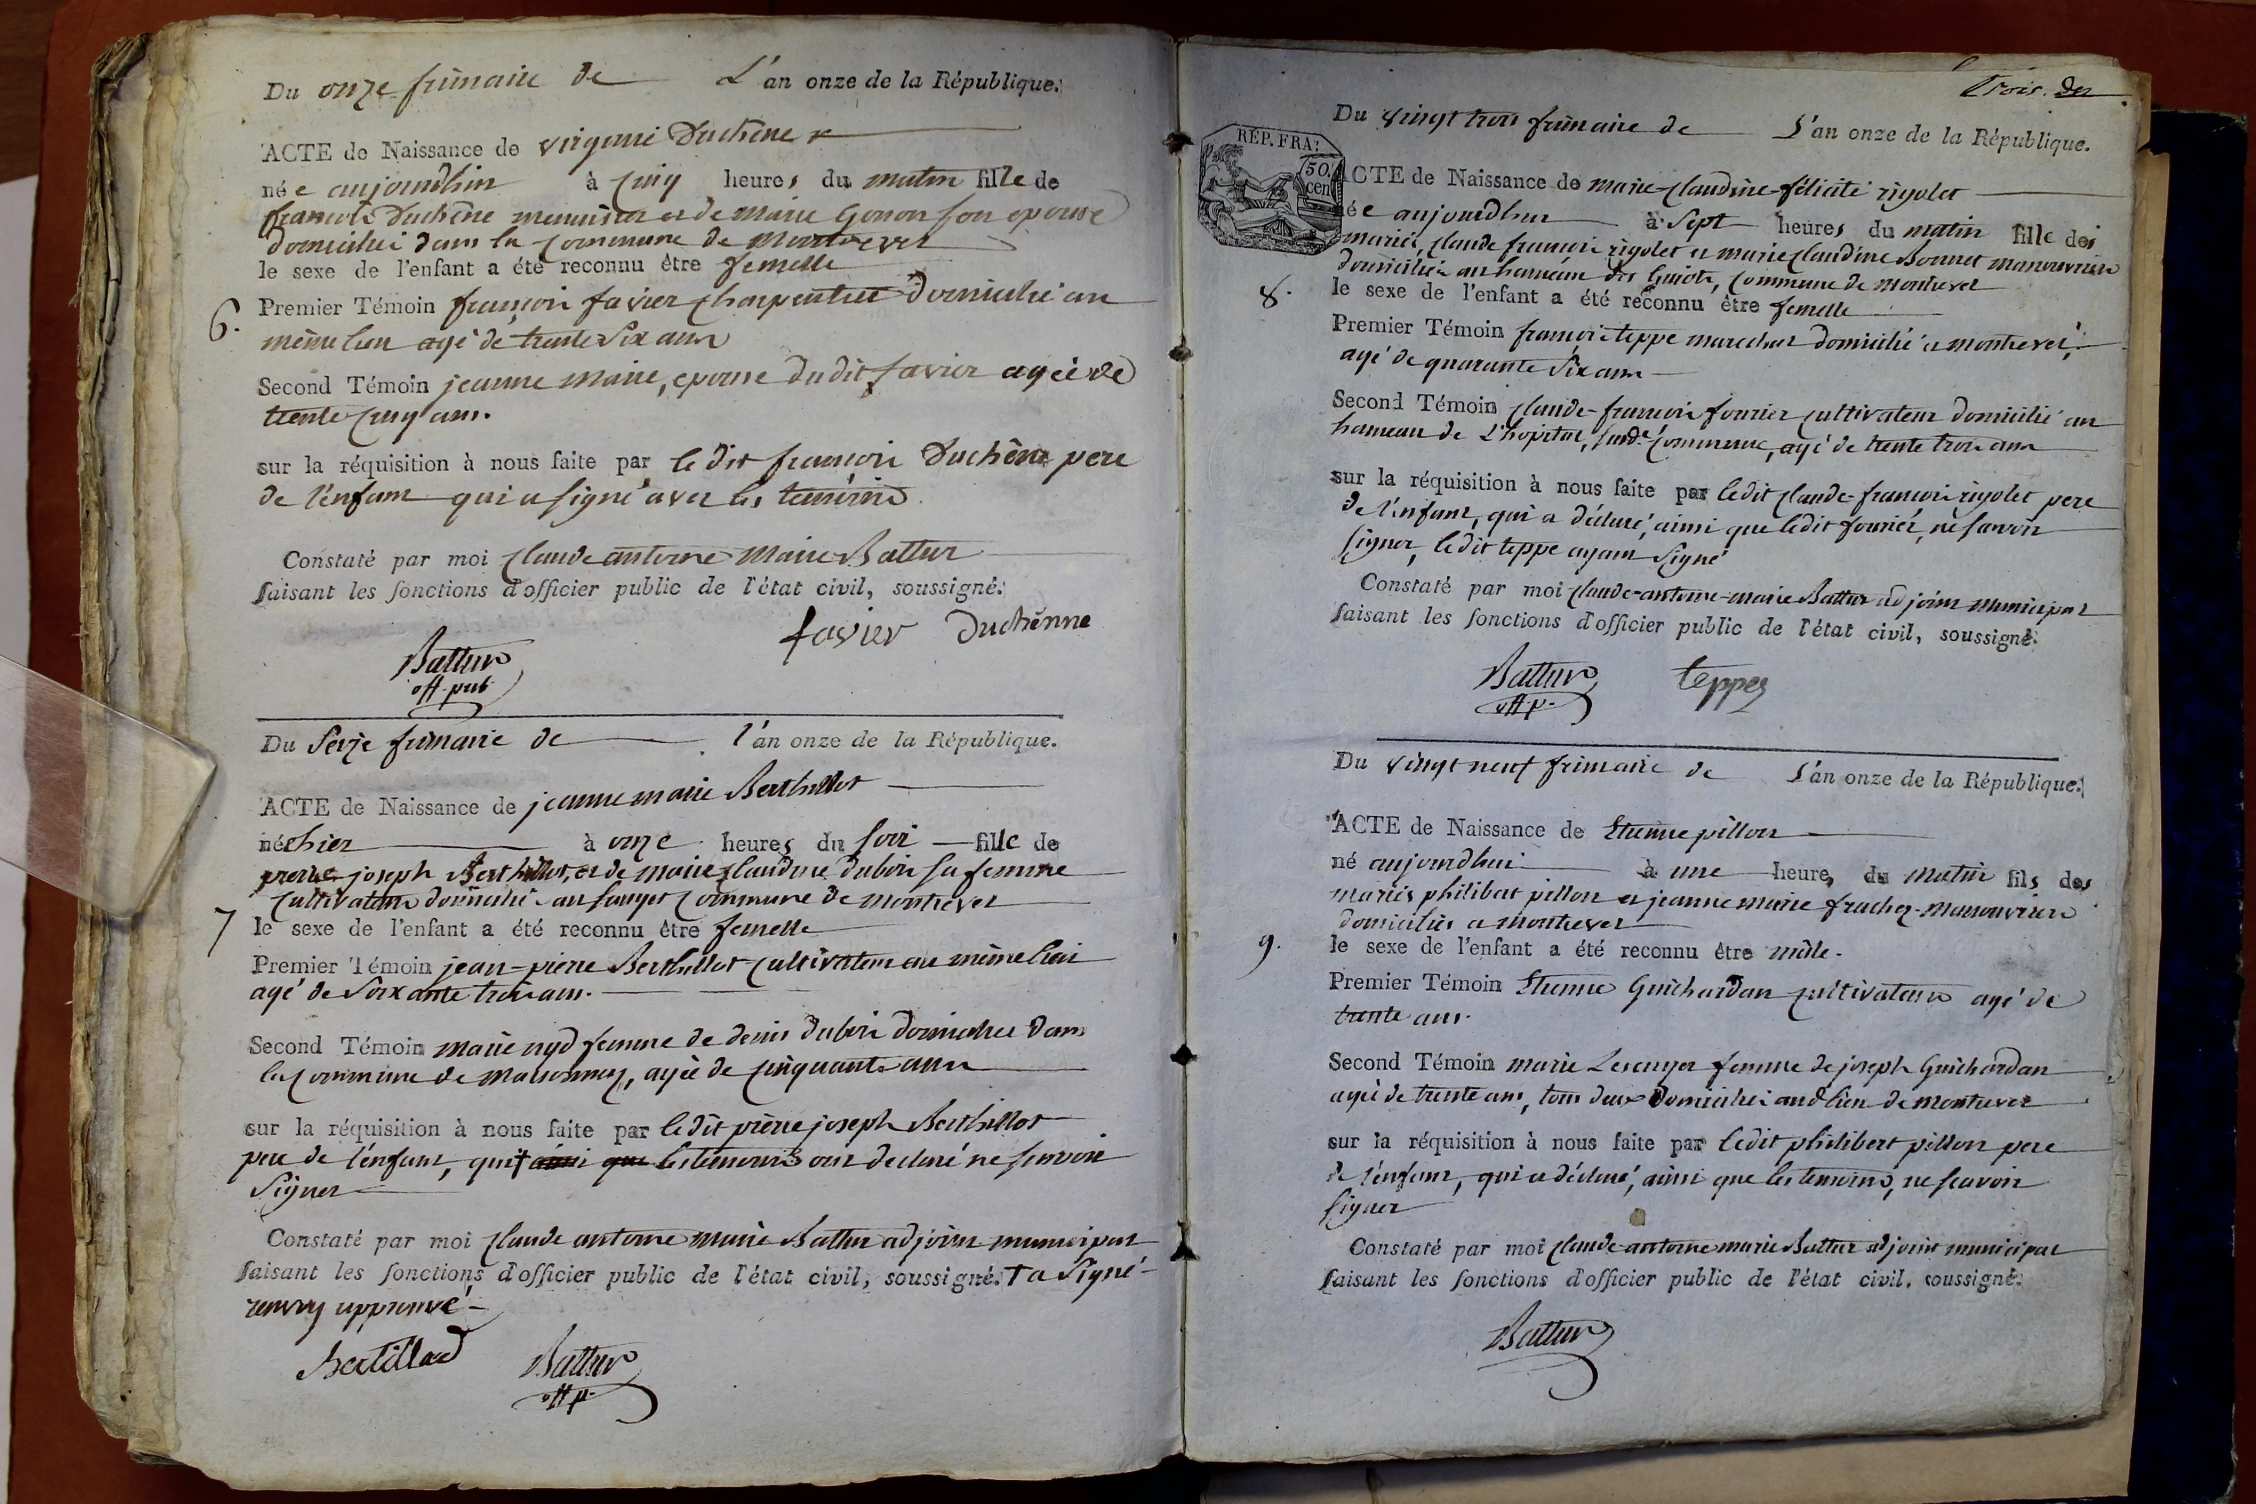 Du onze frimaire de L'an onze de la République.
ACTE de Naissance de virginie Duchêne
née aujourdhui à cinq heures du matin fille de
françois Duchêne menuisier et de marie Gonon son epouse
domiciliés dans la commune de Montrevel
le sexe de l'enfant a été reconnu être femelle
6. Premier Témoin françois favier charpentier domicilié au
même lieu agé de trente six ans
Second Témoin jeanne Marie, epouse du dit favier agée de
trente cinq ans.
sur la réquisition à nous faite par le dit françois Duchêne pere
de l'enfant qui a signé avec les temoins
Constaté par moi claude antoine Marie Battur
faisant les fonctions d'officier public de l'état civil, soussigné.
favier Duchênne
Battur
off. pub.
Du Seize frimaire de l'an onze de la République.
ACTE de Naissance de jeanne marie Berthillot
née hier à onze heures du soir fille de
pierre joseph Berthillot, et de marie claudine dubois sa femme
cultivateurs domiciliés au commune de montrevel
7 le sexe de l'enfant a été reconnu être femelle
Premier Témoin jean-pierre Berthillot cultivateur au même lieu
agé de soixante trois ans.
Second Témoin marie nyd femme de denis dubois domiciliée dans
la commune de Marsonnay, agée de cinquante ans
sur la réquisition à nous faite par ledit pierre joseph Berthillot
pere de l'enfant, qui † ainsi que les temoins ont declaré ne savoir
signer
Constaté par moi claude antoine marie Battur adjoint municipal
faisant les fonctions d'officier public de l'état civil, soussigné. † a signé
renvoy approuvé
Bertillod Battur
off. p.
trois.
Du vingt trois frimaire de L'an onze de la République.
RÉP. FRA.
50 cen
ACTE de Naissance de marie-claudine-félicité rigolet
née aujourdhui à sept heures du matin fille des
mariés, claude françois rigolet et marie claudine Bonnet manouvriers
domiciliés au hameau des Guiots, commune de montrevel
8. le sexe de l'enfant a été reconnu être femelle
Premier Témoin françois teppe marechal domicilié a montrevel,
agé de quarante six ans
Second Témoin claude-françois fourier cultivateur domicilié au
hameau de L'hopital, susde. commune, agé de trente trois ans
sur la réquisition à nous faite par ledit claude-françois rigolet pere
de l'enfant, qui a déclaré, ainsi que ledit fourier, ne savoir
signer, ledit teppe ayant signé
Constaté par moi claude-antoine-marie Battur adjoint municipal
faisant les fonctions d'officier public de l'état civil, soussigné.
Battur teppe
off. p.
Du vingt neuf frimaire de L'an onze de la République.
ACTE de Naissance de Etienne pillon
né aujourdhui à une heure, du matin fils des
mariés philibert pillon et jeanne marie frachez manouvriers
domiciliés a montrevel
9. le sexe de l'enfant a été reconnu être mâle.
Premier Témoin Etienne Guichardan cultivateur agé de
trente ans.
Second Témoin marie femme de joseph Guichardan
agée de trente ans, tous deux domiciliés aud lieu de montrevel
sur la réquisition à nous faite par ledit philibert pillon pere
de l'enfant, qui a déclaré, ainsi que les temoins, ne scavoir
signer
Constaté par moi claude-antoine marie Battur adjoint municipal
faisant les fonctions d'officier public de l'état civil, soussigné.
Battur